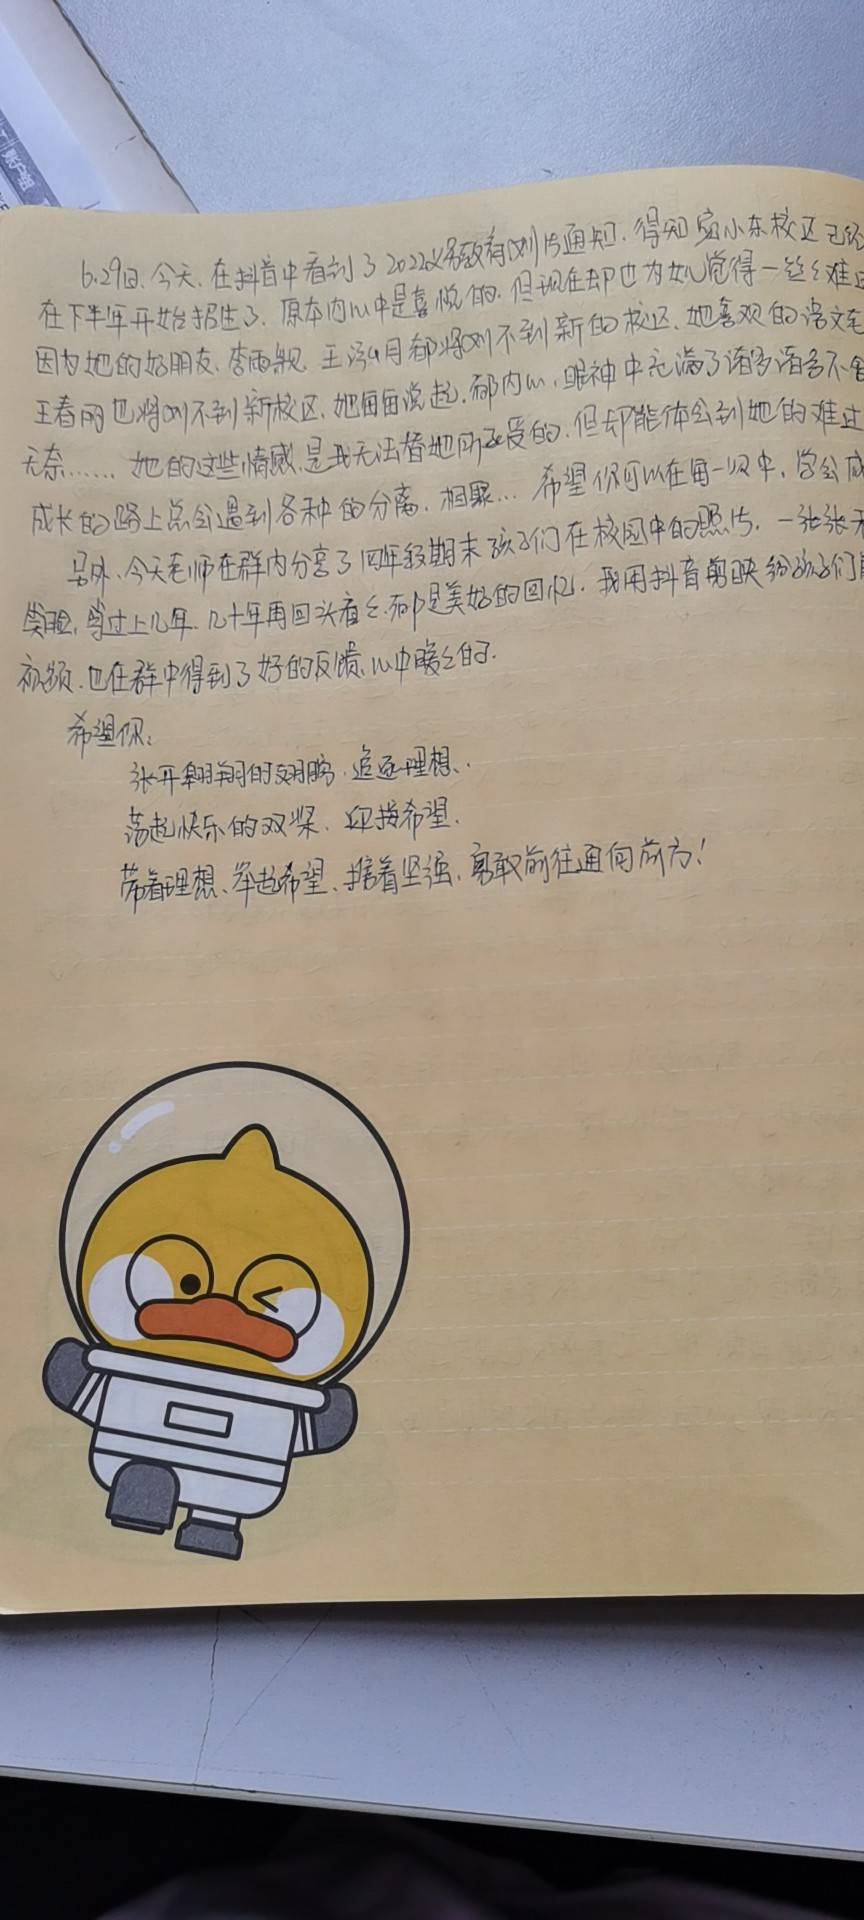 6.29日、今天、在抖音中看到了2022义务教育划片通知、得知 小东校区已经
在下半年开始招生了、原本内心中是喜悦的、但现在却也为女儿觉得一丝丝难过
因为她的好朋友、李雨 、王 月都将划不到新的校区、她喜欢的语文老
王春丽也将划不到新校区、她每每说起、都内心、眼神中充满了诸多诸多不舍
无奈…… 她的这些情感、是我无法替她所承受的、但却能体会到她的难过
成长的路上总会遇到各种的分离、相聚… 希望你可以在每一次中、学会
另外、今天老师在群内分享了四年级期末孩子们在校园中的照片、一张张
笑脸、等过上几年、几十年再回头看看、都是美好的回忆、我用抖音剪映给孩子们
视频、也在群中得到了好的反馈、心中暖暖的、
希望你：
张开翱翔的翅膀、追逐理想、
荡起快乐的双桨、迎接希望、
带着理想、举起希望、揣着坚强、勇敢前往通向前方！